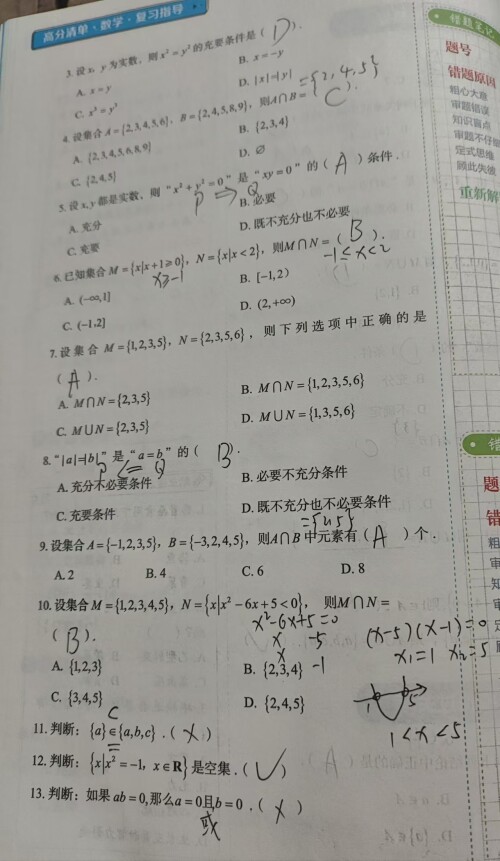 高分清单·数学·复习指导
3. 设x, y为实数, 则x²=y²的充要条件是 ( D ).
A. x=y
B. x=-y
C. x³=y³
D. |x|=|y|
={2,4,5}
4. 设集合A={2,3,4,5,6}, B={2,4,5,8,9}, 则A∩B= ( C ).
A. {2,3,4,5,6,8,9}
B. {2,3,4}
C. {2,4,5}
D. ∅
5. 设x,y都是实数, 则"x²+y²=0"是"xy=0"的 ( A ) 条件.
P ⇒ Q
A. 充分
B. 必要
C. 充要
D. 既不充分也不必要
6. 已知集合M={x|x+1≥0}, N={x|x<2}, 则M∩N= ( B ).
x≥-1
-1≤x<2
A. (-∞,1]
B. [-1,2)
C. (-1,2]
D. (2,+∞)
7. 设集合M={1,2,3,5}, N={2,3,5,6}, 则下列选项中正确的是
( A ).
A. M∩N={2,3,5}
B. M∩N={1,2,3,5,6}
C. M∪N={2,3,5}
D. M∪N={1,3,5,6}
8. "|a|=|b|"是"a=b"的 ( B .
P ⇐ Q
A. 充分不必要条件
B. 必要不充分条件
C. 充要条件
D. 既不充分也不必要条件
={2,5}
9. 设集合A={-1,2,3,5}, B={-3,2,4,5}, 则A∩B中元素有 ( A ) 个.
A. 2
B. 4
C. 6
D. 8
10. 设集合M={1,2,3,4,5}, N={x|x²-6x+5<0}, 则M∩N=
x²-6x+5=0
( B ).
x -5
x -1
(x-5)(x-1)=0
x₁=1 x₂=5
A. {1,2,3}
B. {2,3,4}
C. {3,4,5}
D. {2,4,5}
1 5
1<x<5
⊆
11. 判断: {a}∈{a,b,c}. ( × )
12. 判断: {x|x²=-1, x∈R}是空集. ( √ )
13. 判断: 如果ab=0,那么a=0且b=0. ( × )
或
错题笔记
题号
错题原因
粗心大意
审题错误
知识盲点
审题不仔细
定式思维
顾此失彼
重新解
错
题
错
粗
审
知
审
定
顾